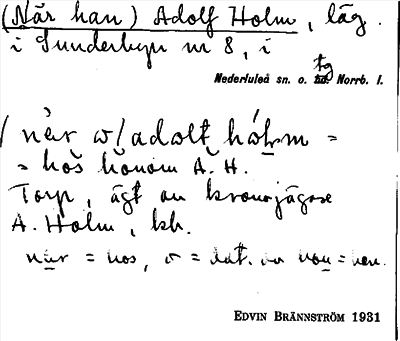 (När han) Adolf Holm, läg.
i Sunderbyn nr 8, i
tg
Nederluleå sn. o. hd. Norrb. l.
när w/adolt hólm =
= hos honom A. H.
Torp, ägt av kronojägare
A. Holm, kb.
när = hos, = dat. av hon = han.
EDVIN BRÄNNSTRÖM 1931